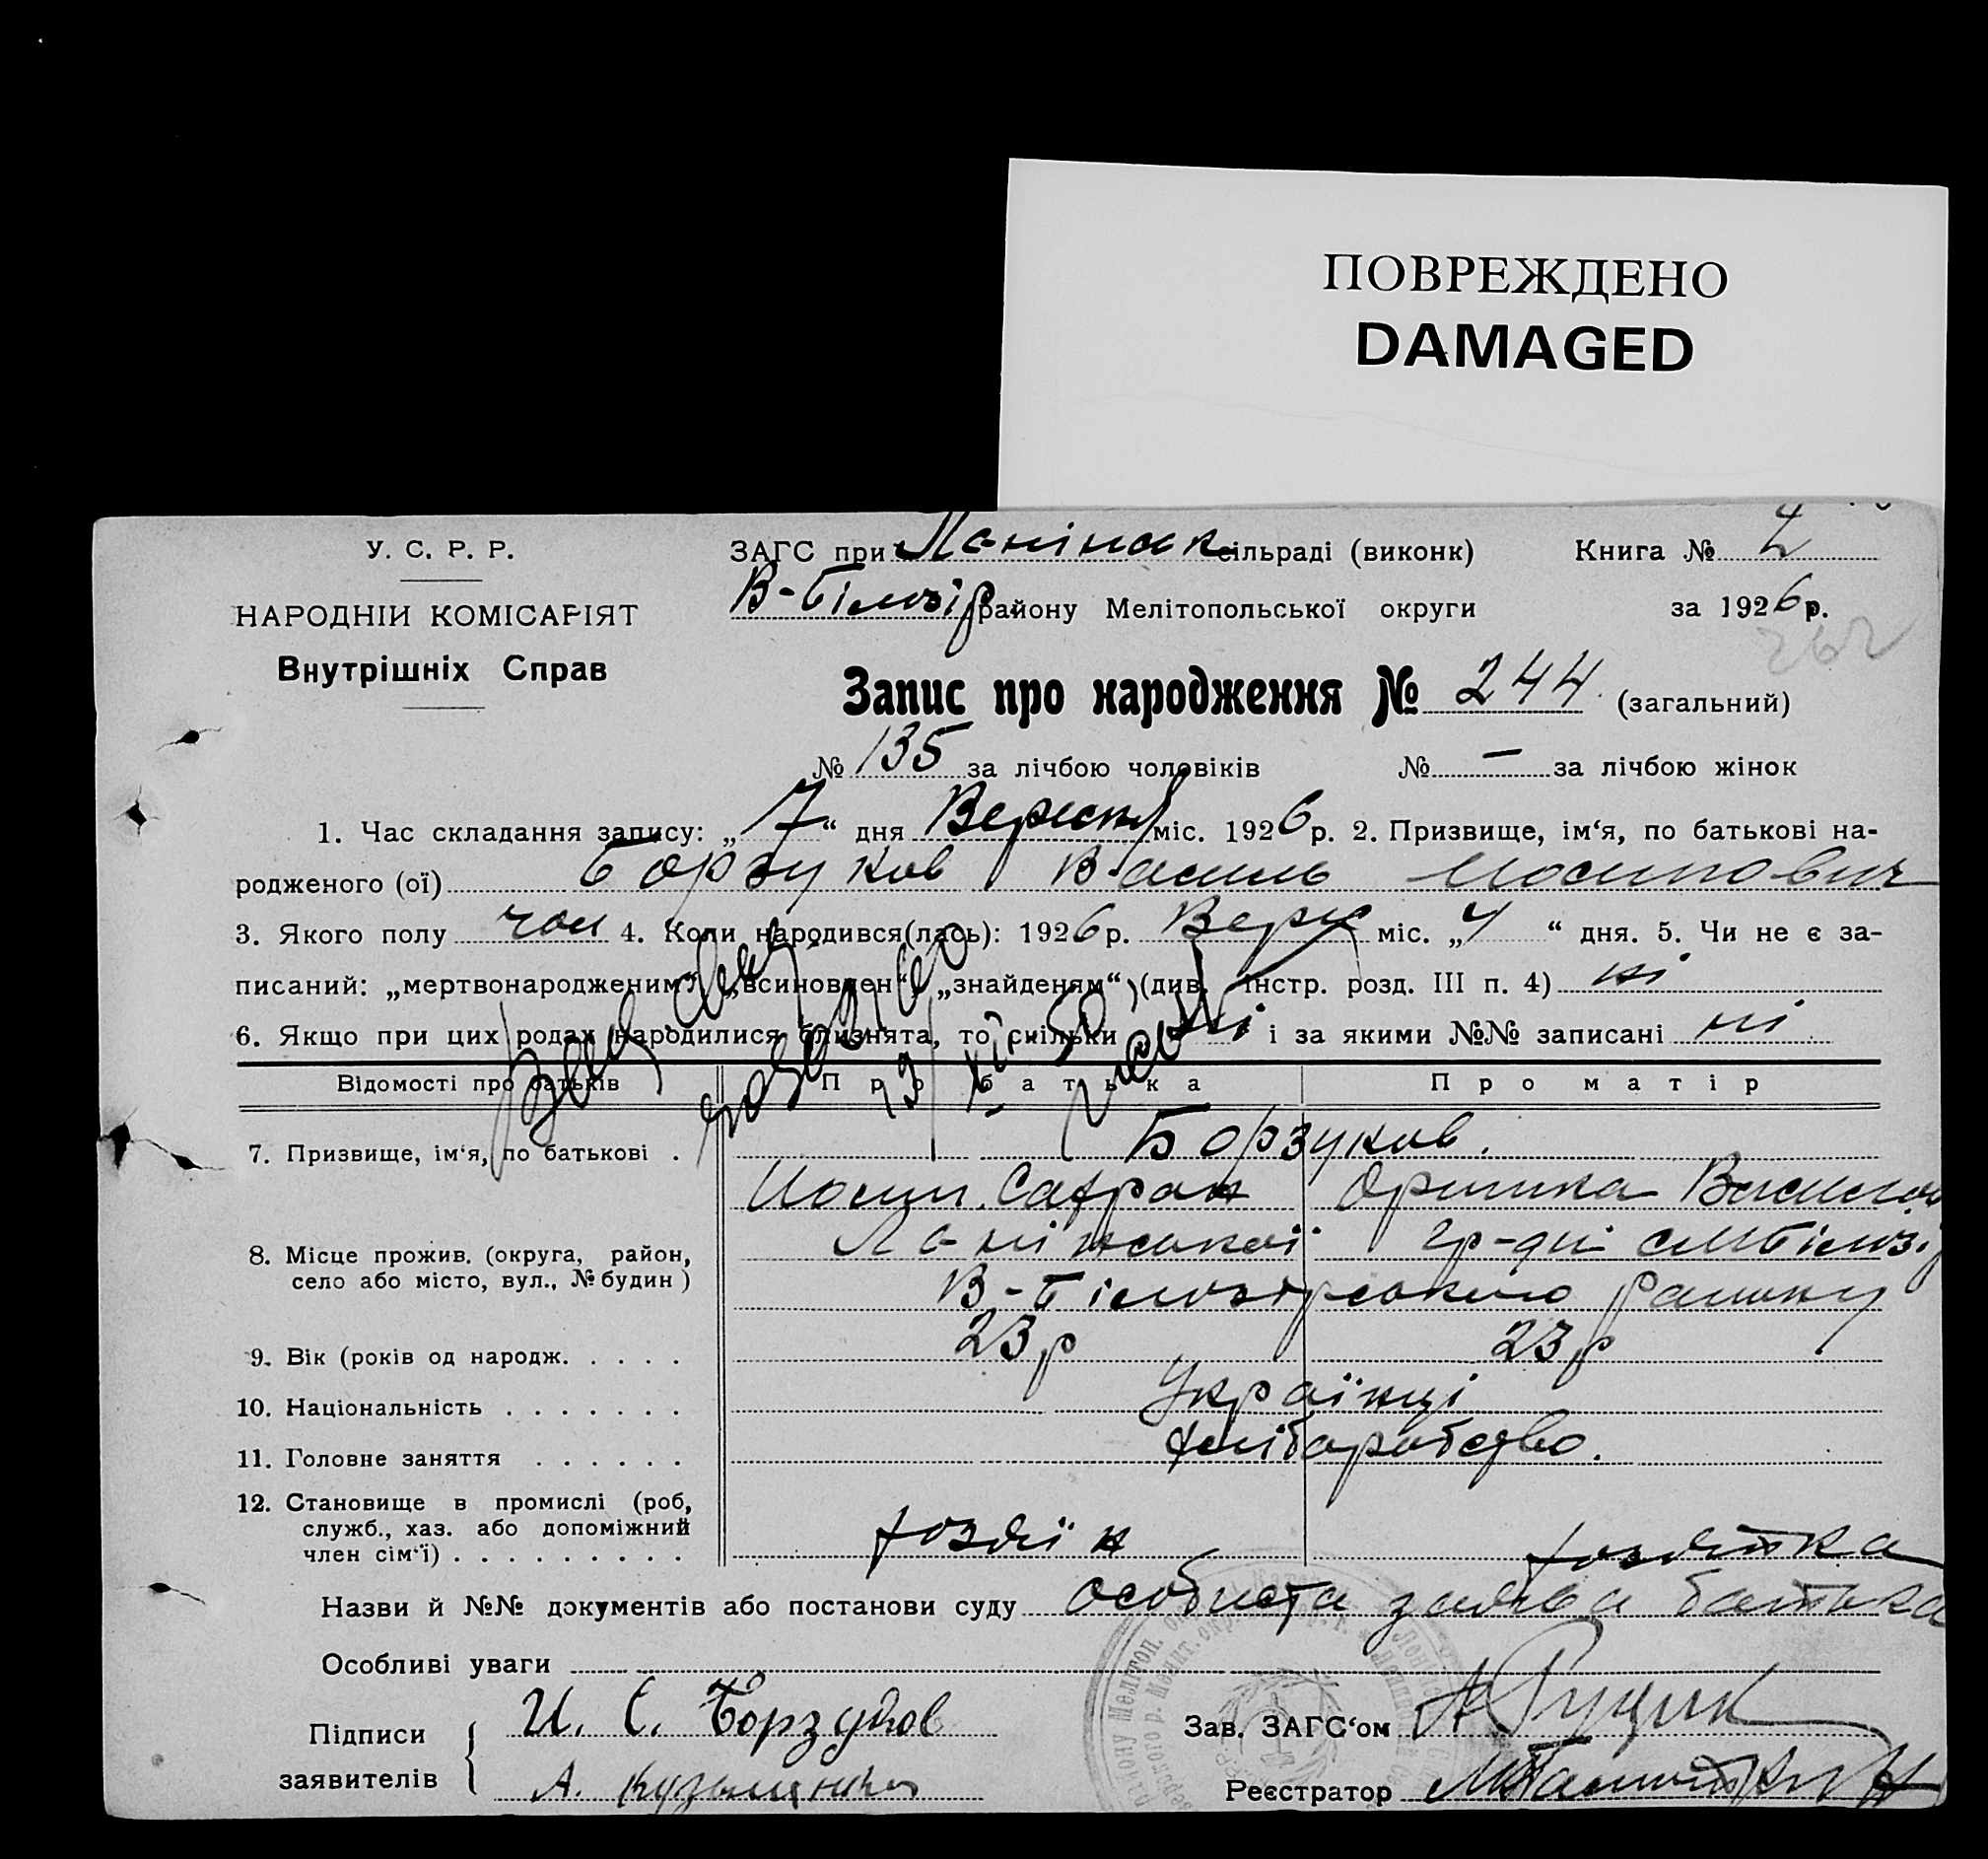 ПОВРЕЖДЕНО
DAMAGED
У. С. Р. Р.
НАРОДНІЙ КОМІСАРІЯТ
Внутрішніх Справ
ЗАГС при сільраді (виконк)
Книга №
В-Білозір району Мелітопольської округи
за 1926 р.
262
Запис про народження № 244 (загальний)
№ 135 за лічбою чоловіків № — за лічбою жінок
1. Час складання запису: „7“ дня Вересня міс. 1926 р. 2. Призвище, ім‘я, по батькові на-
родженого (ої) Борзуков Василь Иосипович
3. Якого полу чол 4. Коли народився(лась): 1926 р. Верес міс. „4“ дня. 5. Чи не є за-
писаний: „мертвонародженим“, „всиновлен“, „знайденям“ (див. Інстр. розд. III п. 4) ні
6. Якщо при цих родах народилися близнята, то скільки ні і за якими №№ записані ні
Відомості про батьків Про батька Про матір
7. Призвище, ім‘я, по батькові . Борзуков.
Иосип. Сафрон Оришка Василов
8. Місце прожив. (округа, район,
село або місто, вул., № будин)
гр-дні
В-Білозірського району
9. Вік (років од народж. . . . . 23 р 23 р
10. Національність . . . . . . . Українці
11. Головне заняття . . . . . . хліборобство.
12. Становище в промислі (роб,
служб., хаз. або допоміжний
член сім‘ї) . . . . . . . . . хозяїн хозяйка
Назви й №№ документів або постанови суду особиста заява батька
Особливі уваги
Підписи
заявителів
И. С. Борзуков
А.
Зав. ЗАГС‘ом
Реєстратор